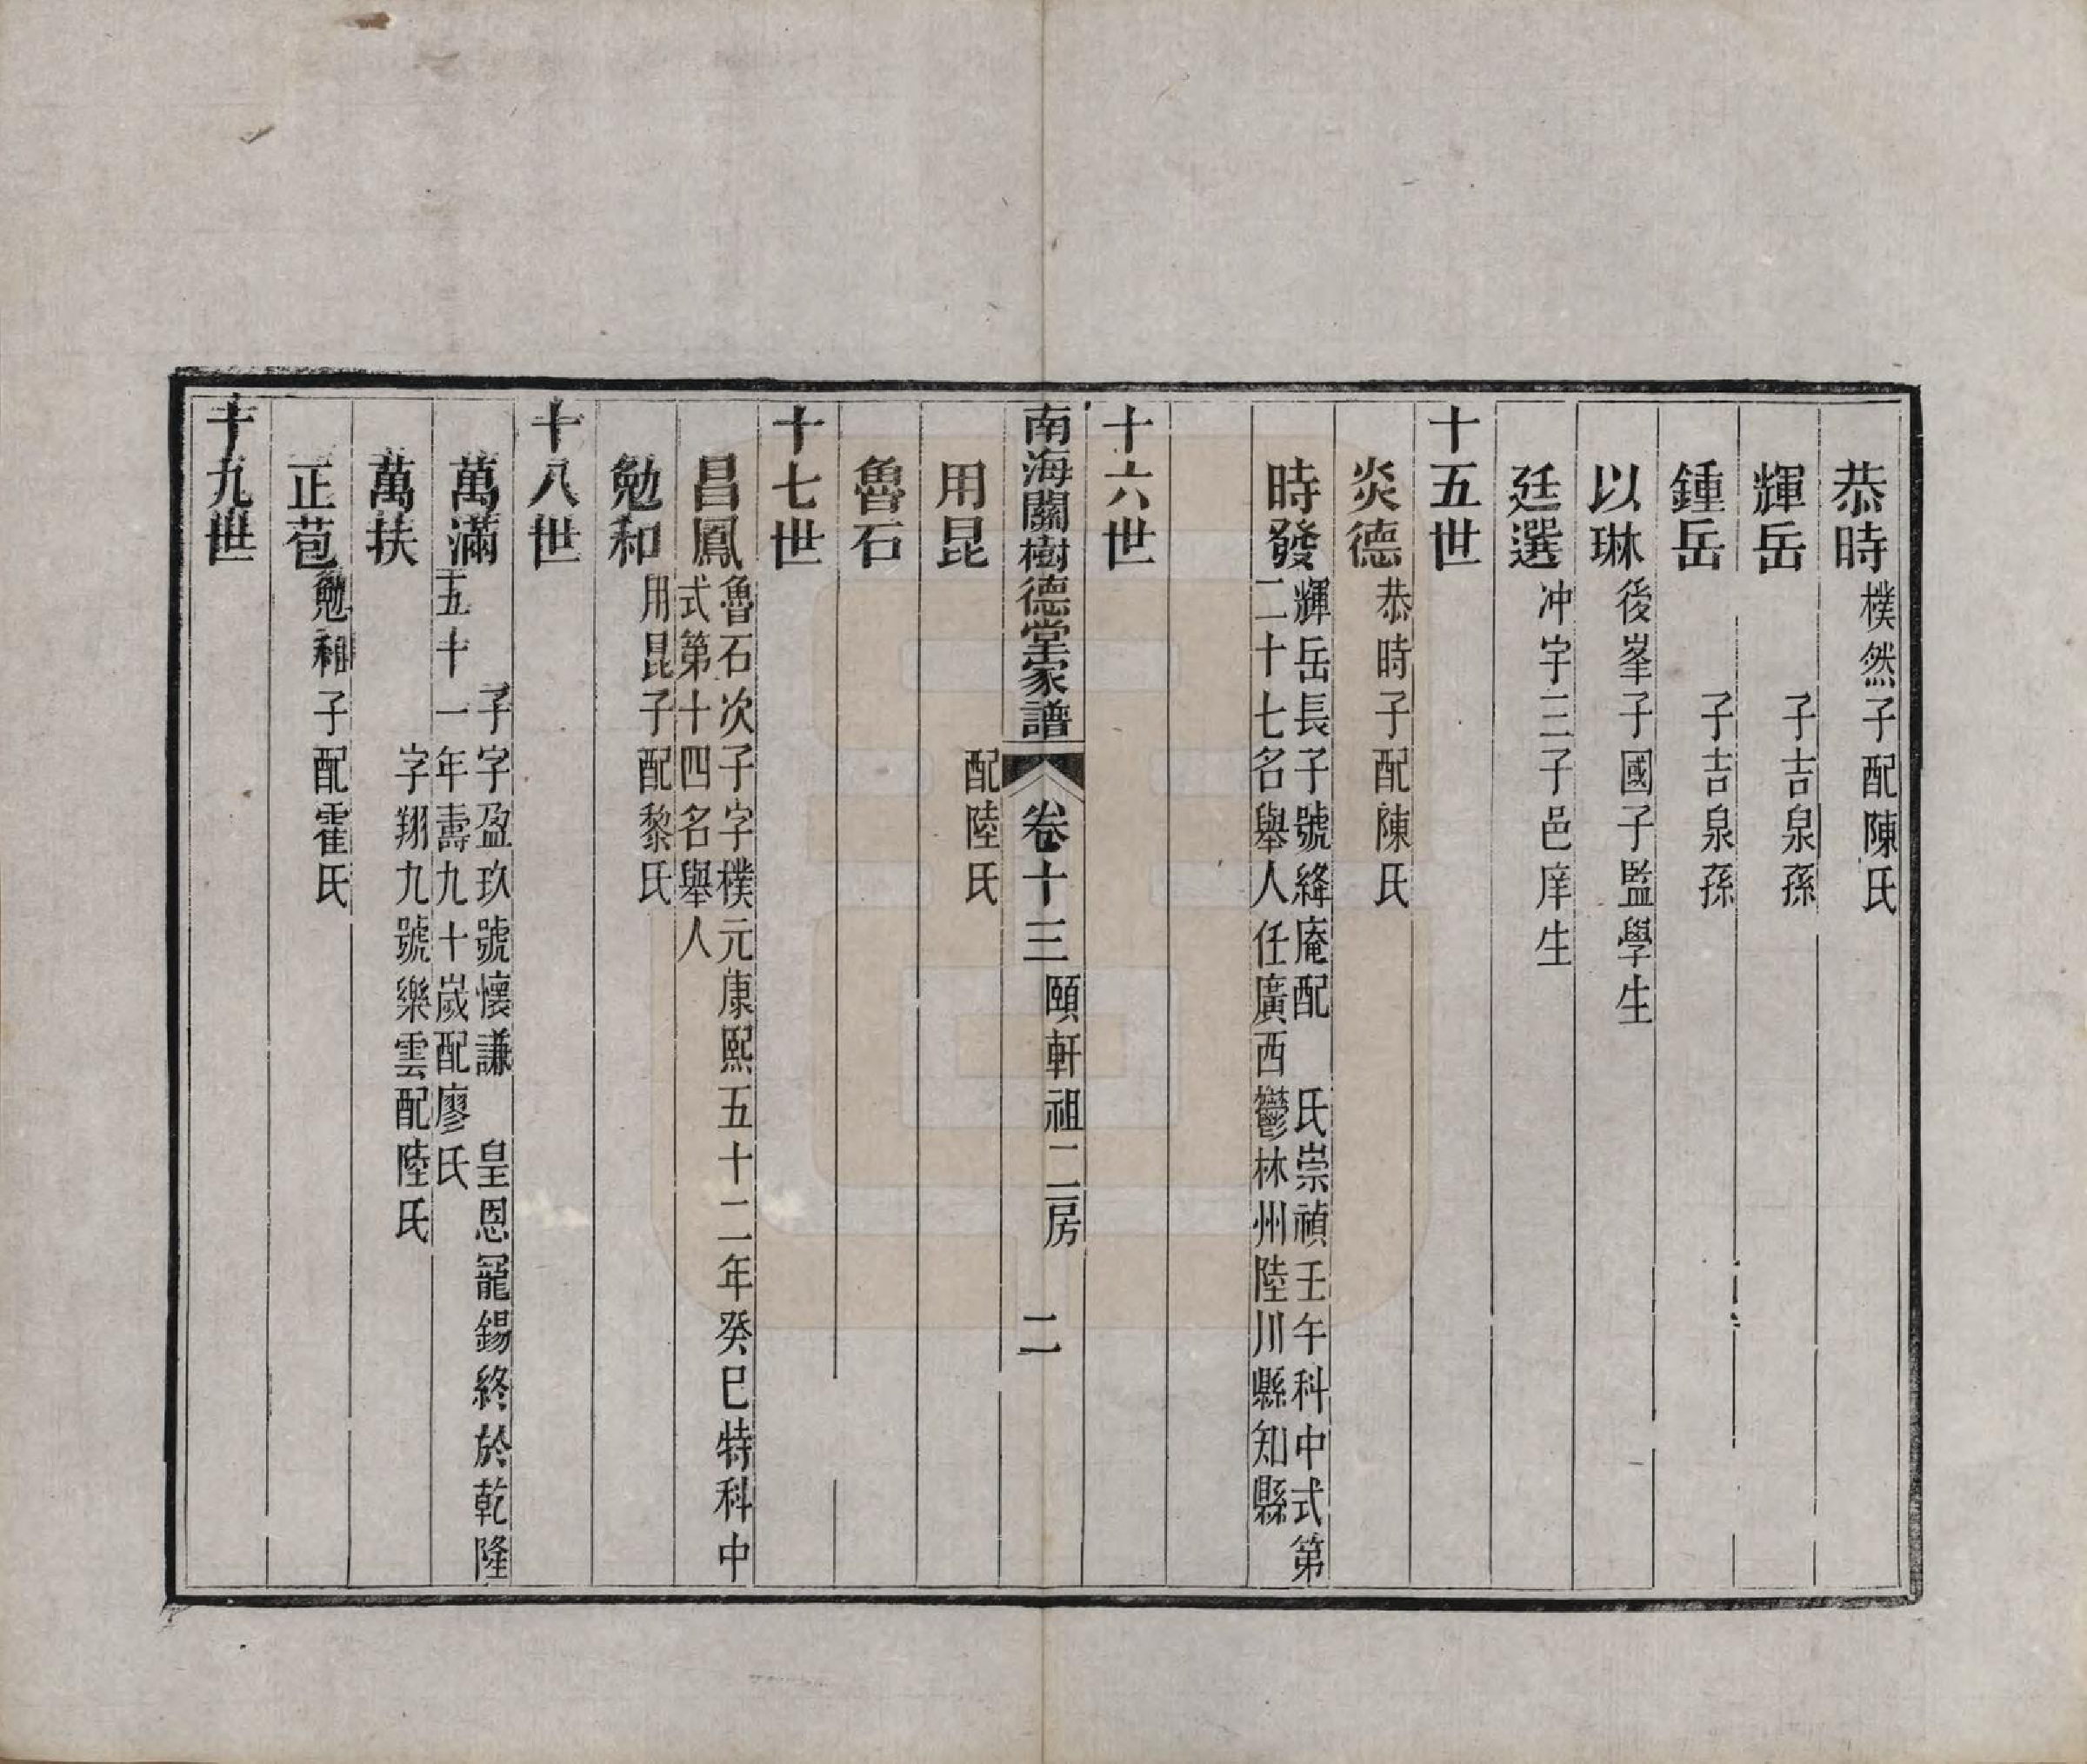 恭時 樸然子配陳氏
輝岳 子吉泉孫
鍾岳 子吉泉孫
以琳 後峯子國子監學生
廷選 冲宇三子邑庠生
十五世
炎德 恭時子配陳氏
時發 輝岳長子號絳庵配 氏崇禎壬午科中式第
二十七名舉人任廣西鬱林州陸川縣知縣
十六世
南海關樹德堂家譜 卷十三 頤軒祖二房 二
用昆 配陸氏
魯石
十七世
昌鳳 魯石次子字樸元康熙五十二年癸巳特科中
式第十四名舉人
勉和 用昆子配黎氏
十八世
萬滿 子字盈玖號懷謙 皇恩寵錫終於乾隆
五十一年壽九十歲配廖氏
萬扶 字翔九號樂雲配陸氏
正苞 勉和子配霍氏
十九世